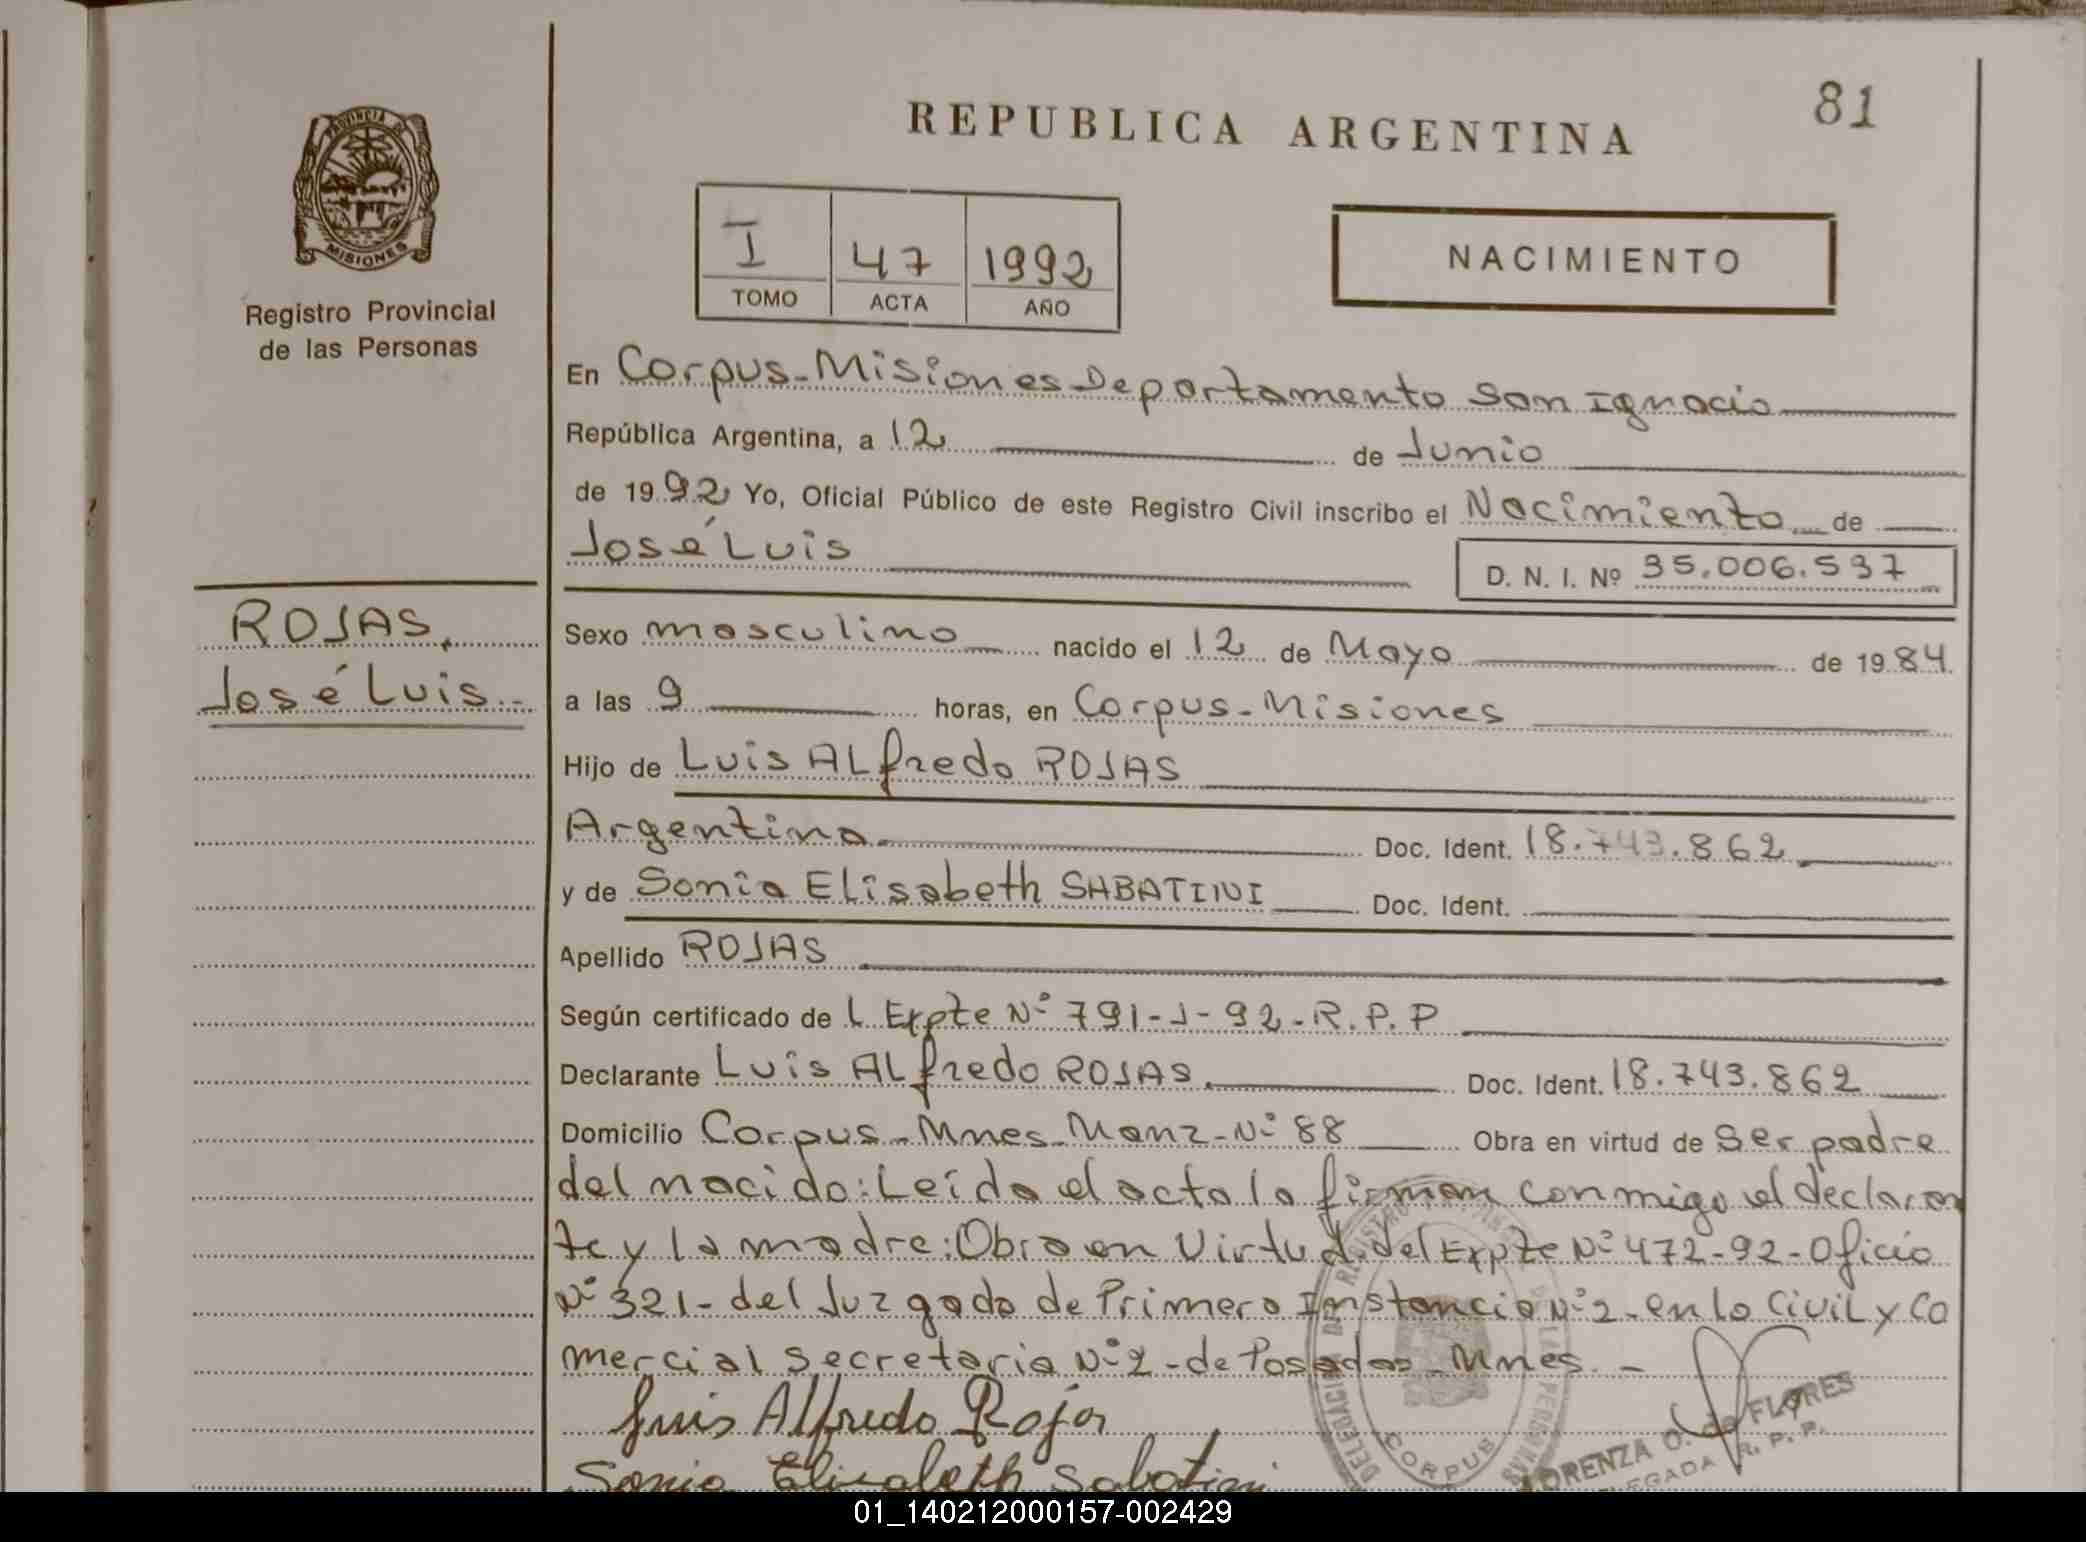 81
REPUBLICA ARGENTINA
PROVINCIA DE
MISIONES
Registro Provincial
de las Personas
I 47 1992
TOMO ACTA AÑO
NACIMIENTO
En Corpus-Misiones Departamento San Ignacio
República Argentina, a 12 de Junio
de 1992 Yo, Oficial Público de este Registro Civil inscribo el Nacimiento de
José Luis
D. N. I. Nº 35.006.537
ROJAS,
José Luis.-
Sexo masculino nacido el 12 de Mayo de 1984
a las 9 horas, en Corpus-Misiones
Hijo de Luis ALfredo ROJAS
Argentino Doc. Ident. 18.743.862
y de Sonia ELisabeth SABATINI Doc. Ident.
Apellido ROJAS
Según certificado de L Expte Nº 791-J-92-R.P.P
Declarante Luis ALfredo ROJAS Doc. Ident. 18.743.862
Domicilio Corpus-Mnes-Manz-Nº 88 Obra en virtud de Ser padre
del nacido: Leída el acta la firman conmigo el declaran
te y la madre: Obra en Virtud del Expte Nº 472-92-Oficio
Nº 321-del Juzgado de Primera Instancia Nº 2-en lo Civil y Co
mercial secretaria Nº 2-de Posadas-Mnes.-
Luis Alfredo Roja
Sonia Elisabeth Sabatini
CORPUS
LORENZA O. de FLORES
DELEGADA R. P. P.
01_140212000157-002429